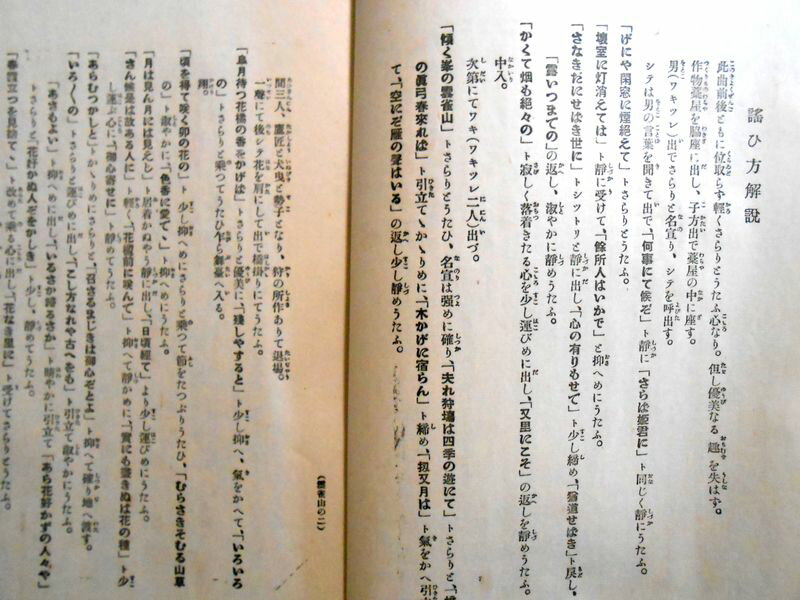 謠ひ方解說
此曲前後ともに位取らず輕くさらりとうたふ心なり。但し優美なる趣を失はず。
作物藁屋を脇座に出し、子方出で藁屋の中に座す。
男(ワキツレ)出でさらりと名宣り、シテを呼出す。
シテは男の言葉を聞きて出で、「何事にて候ぞ」ト靜に「さらば姬君に」ト同じく靜にうたふ。
「げにや閑窓に煙絕えて」トさらりとうたふ。
「壞室に灯消えては」ト靜に受けて、「餘所人はいかで」と抑へめにうたふ。
「さなきだにせばき世に」トシツトリと靜に出し、「心の有りもせで」ト少し締め、「猶道せばき」ト戾し、
「露いつまでの」の返し、淑やかに靜めうたふ。
「かくて烟も絕々の」ト寂しく落着きたる心を少し運びめに出し、「又里にこそ」の返しを靜めうたふ。
中入。
次第にてワキ(ワキツレ二人)出づ。
「傾く峯の雲雀山」トさらりとうたひ、名宣は强めに確り、「夫れ狩塲は四季の遊にて」トさらりと、
の眞弓春來れば」ト引立て、かゝりめに、「木かげに宿らん」ト締め、「扨又月は」ト氣をかへ引
て、「空にぞ雁の聲はいる」の返し少し靜めうたふ。
(雲雀山の二)
間三人、鷹匠と犬曳と勢子となり、狩の所作ありて退塲。
一聲にて後シテ花を肩にして出で橋掛りにてうたふ。
「皐月待つ花橘の香をかげば」トさらりと優美に、「殘しやすると」ト少し抑へ、氣をかへて、「いろいろ
の」トさらりと乘つてうたひ乍ら舞臺へ入る。
翔。
「頃を得て咲く卯の花の」ト少し抑へめにさらりと乘つて節をたつぷりうたひ、「むらさきそむる山草
の」ト淑やかに、「色香に愛で、」ト抑へめにうたふ。
「月は見ん月には見えじ」ト居着かぬやう靜に出し、「日頃經て」より少し運びめにうたふ。
「さん候是は故ある人に」ト輕く、「花檻前に咲んで」ト抑へて靜かめに、「實にも盡きぬは花の種」ト少
し運ぶ心に、「御心寄せに」ト靜めてうたふ。
「あらむつかしと」トかゝりめにさらりと、「召さるまじきは御心ぞとよ」ト抑へて確り地へ渡す。
「いろ〱の」トさらりと運びめに出し、「こし方なれや古へをも」ト引立て淑やかにうたふ。
「あさもよい」ト抑へめに出し、「いるさか歸るさか」ト晴やかに引立て「あら花好かずの人々や」
トさらりと、「花好かぬ人ぞをかしき」ト少し、靜めてうたふ。
「春霞立つを見捨て、」ト改めて乘る心に出し、「花なき里に」ト受けてさらりとうたふ。